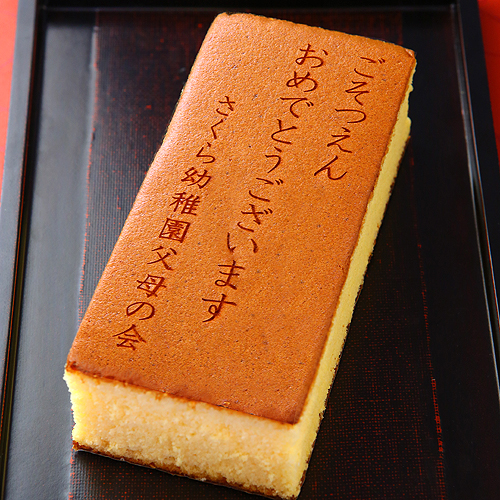 ごそつえん
おめでとうございます
さくら幼稚園父母の会